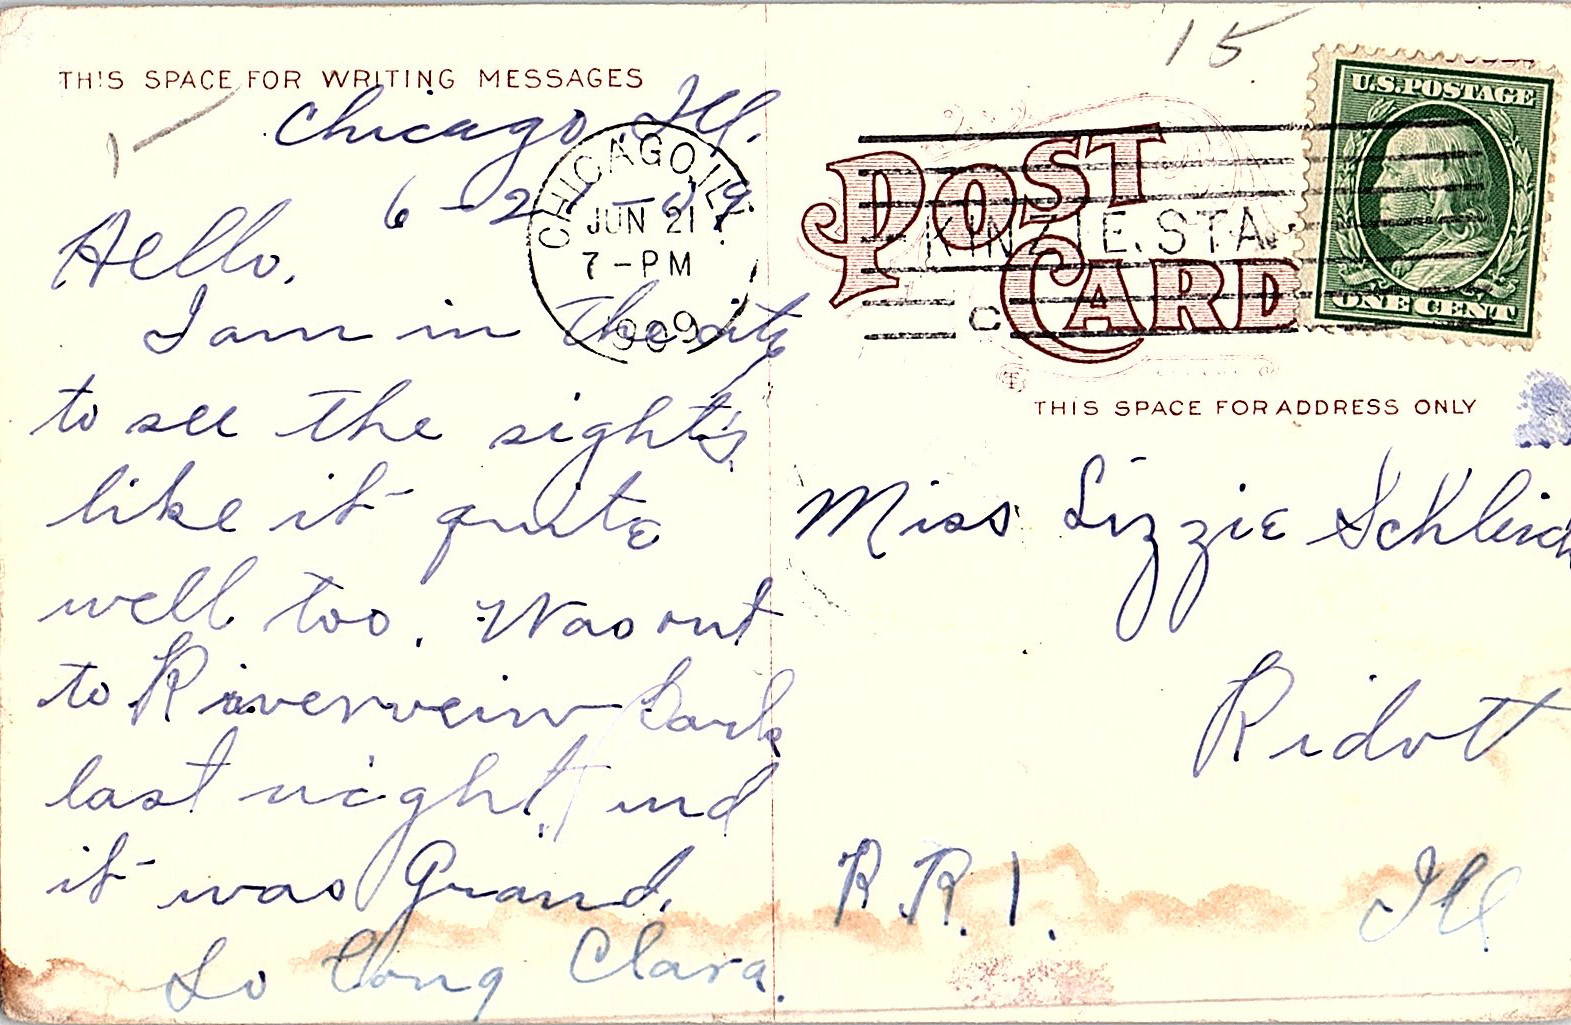 15
THIS SPACE FOR WRITING MESSAGES
1
Chicago, Ill.
6-21-09
Hello.
I am in the city
to see the sights
like it quite
well too. Was out
to Riverveiw Park
last night, and
it was Grand.
So Long Clara.
CHICAGO, ILL.
JUN 21
7-PM
1909
KINZIE. STA.
C
POST
CARD
U.S. POSTAGE
ONE CENT
THIS SPACE FOR ADDRESS ONLY
Miss Lizzie Schleich
Ridott
R.R. 1.
Ill